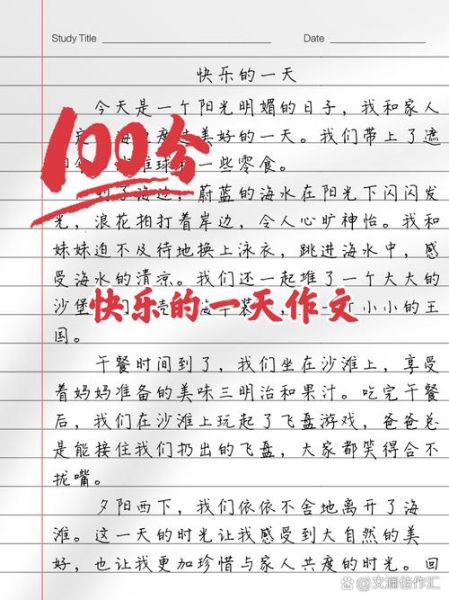 Study Title
Date
快乐的一天
今天是一个阳光明媚的日子，我和家人
美好的一天。我们带上了遮
球 一些零食。
100分
海边，蔚蓝的海水在阳光下闪闪发
光，浪花拍打着岸边，令人心旷神怡。我和
妹妹迫不及待地换上泳衣，跳进海水中，感
受海水的清凉。我们还一起堆了一个大大的
沙堡 小小的王
快乐的一天作文
国。
午餐时间到了，我们坐在沙滩上，享受
着妈妈准备的美味三明治和果汁。吃完午餐
后，我们在沙滩上玩起了飞盘游戏，爸爸总
是能接住我们扔出的飞盘，大家都笑得合不
拢嘴。
夕阳西下，我们依依不舍地离开了海
滩。这一天的时光让我感受到大自然的美
好，也让我更加珍惜与家人共度的时光。回
@文涧佳作汇